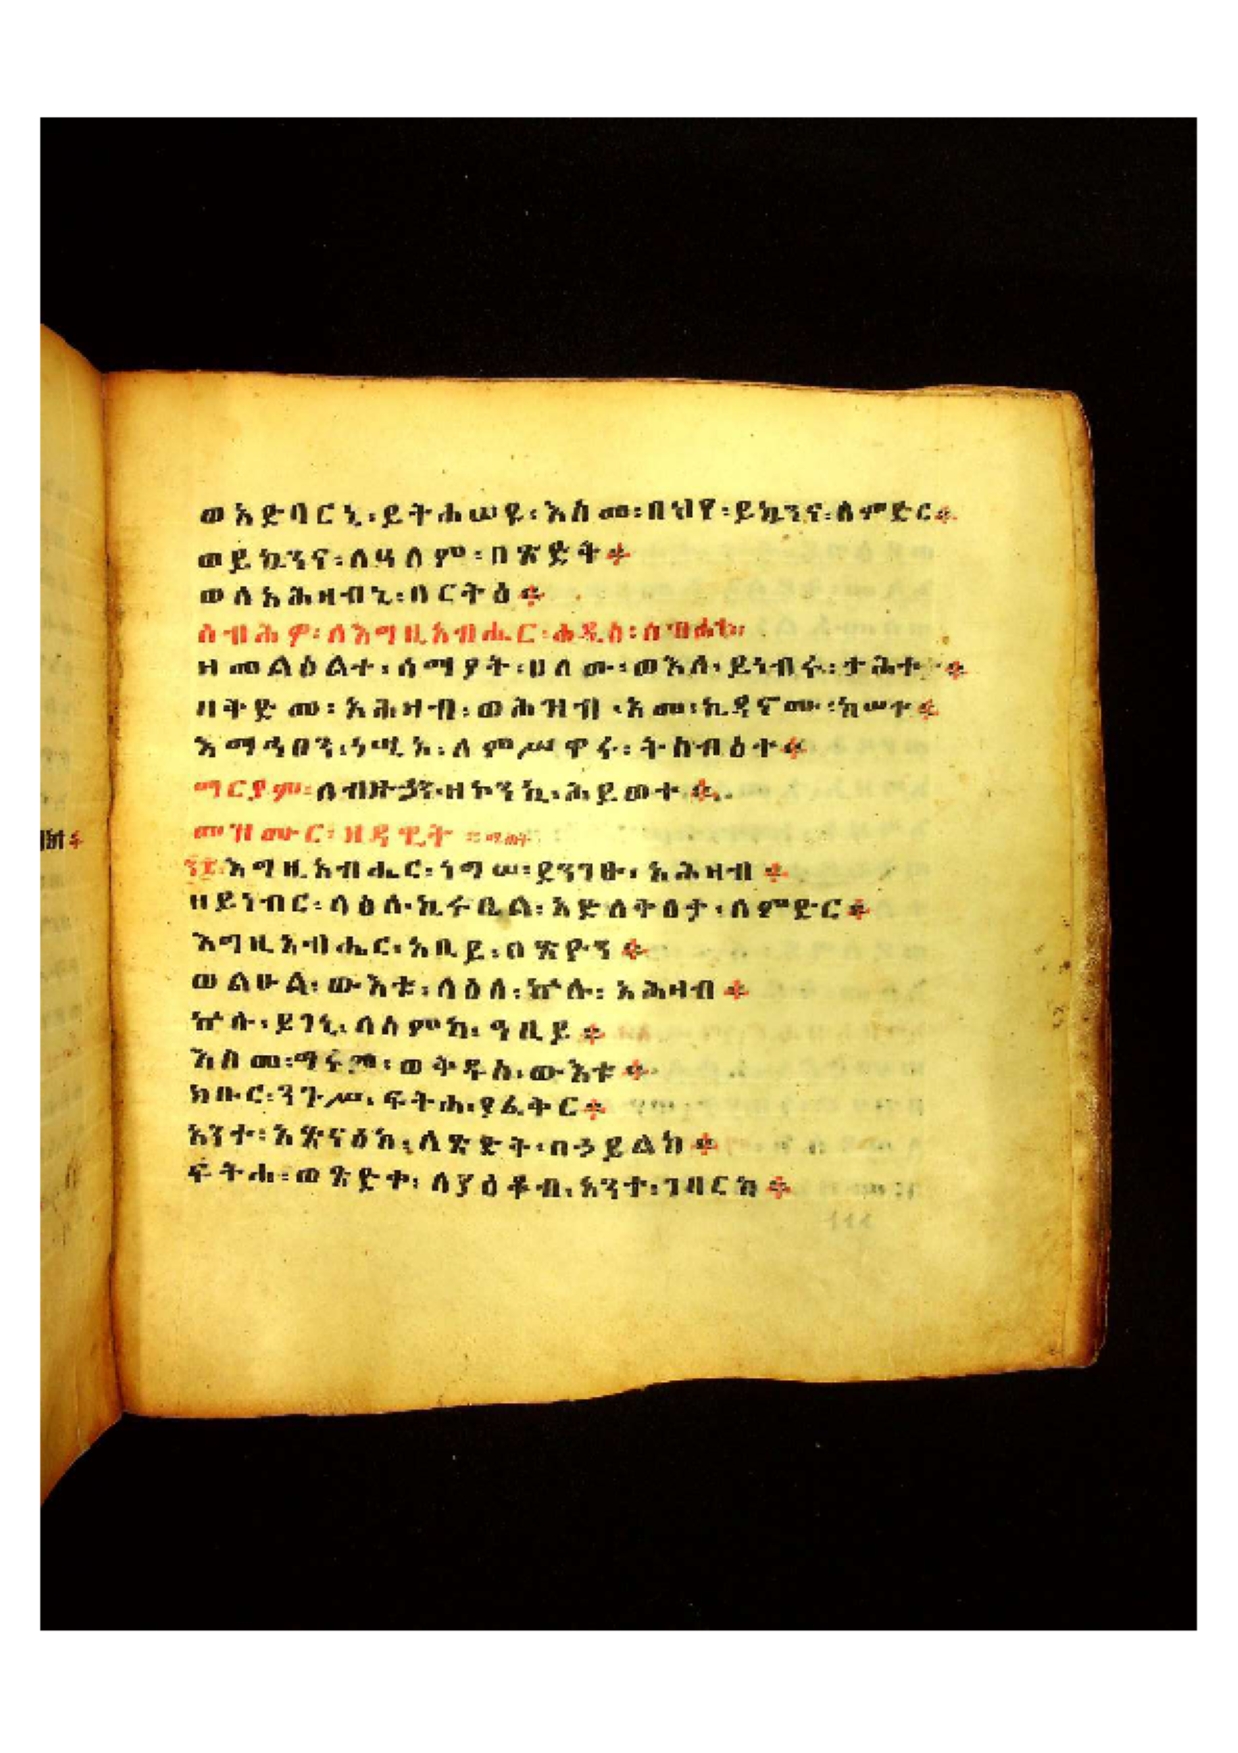 ወአድባርኒ፡ይትሐሠዩ፡እስመ፡በህየ፡ይኴንና፡ለምድር፨
ወይኴንና፡ለዓለም፡በጽድቅ፨
ወለአሕዛብኒ፡በርትዕ፨
ስብሕዎ፡ለእግዚአብሔር፡ሐዲስ፡ስብሐተ።
ዘመልዕልተ፡ሰማያት፡ሀለው፡ወእለ፡ይነብሩ፡ታሕተ፨
ዛቅድመ፡አሕዛብ፡ወሕዝብ፡አመ፡ኪዳኖሙ፡ከሠተ፨
እማኅፀን፡ነሢአ፡ለምሥዋዔ፡ትስብዕተ፨
ማርያም፡ለብዙኃን፡ዘኮንኪ፡ሕይወተ፨
መዝሙር፡ዘዳዊት።
እግዚአብሔር፡ነግሠ፡ደንገፁ፡አሕዛብ፨
ዘይነብር፡ላዕለ፡ኪሩቤል፡አድለቅለቃ፡ለምድር፨
እግዚአብሔር፡አቢይ፡በጽዮን፨
ወልሁል፡ውእቱ፡ላዕለ፡ኵሉ፡አሕዛብ፨
ኵሉ፡ይገኒ፡ለስምከ፡ዓቢይ፨
እስመ፡ግሩም፡ወቅዱስ፡ውእቱ፨
ክቡር፡ንጉሥ፡ፍትሐ፡ያፈቅር፨
አንተ፡አጽናዕከ፡ለጽድቅ፡በኃይልከ፨
ፍትሐ፡ወጽድቀ፡ለያዕቆብ፡አንተ፡ገበርከ፨